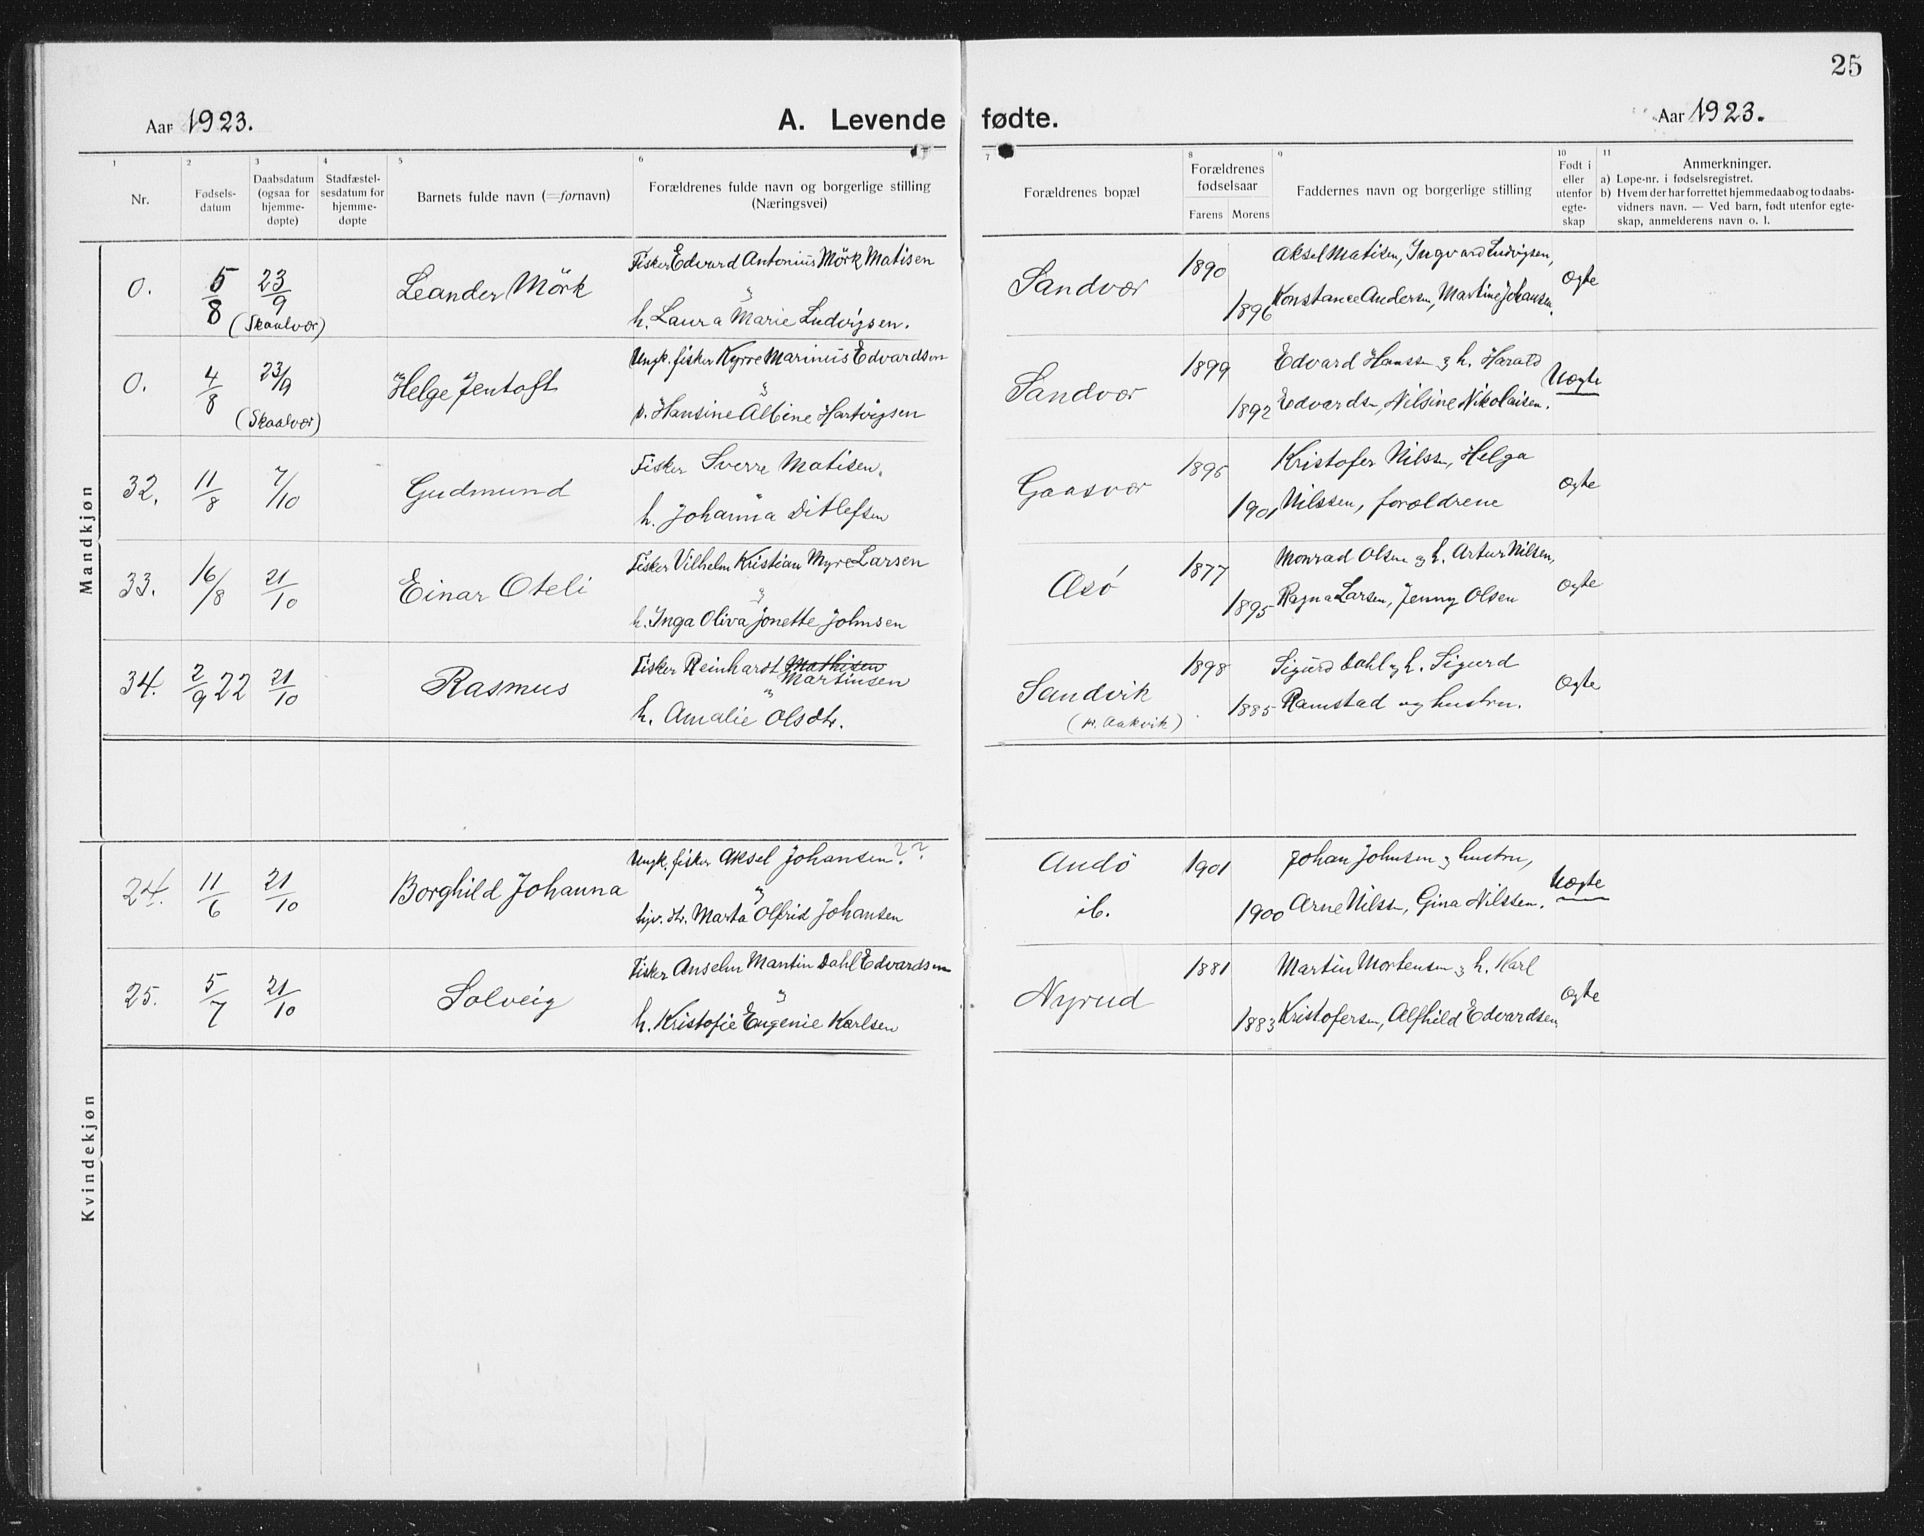 25
Aar 1923.
A. Levende fødte.
Aar 1923.
1
2
3
4
5
6
7
8
9
10
11
Nr.
Fødsels-
datum
Daabsdatum
(ogsaa for
hjemme-
døpte)
Stadfæstel-
sesdatum for
hjemme-
døpte
Barnets fulde navn (=fornavn)
Forældrenes fulde navn og borgerlige stilling
(Næringsvei)
Forældrenes bopæl
Forældrenes
fødselsaar
Farens Morens
Faddernes navn og borgerlige stilling
Født i
eller
utenfor
egte-
skap
Anmerkninger.
a) Løpe-nr. i fødselsregistret.
b) Hvem der har forrettet hjemmedaab og to daabs-
vidners navn. — Ved barn, født utenfor egte-
skap, anmelderens navn o. l.
Mandkjøn
0. 5/8 23/9 (Skaalvær) Leander Mörk
Fisker Edvard Antonius Mörk Matisen
"
h. Laura Marie Ludvigsen.
Sandvær 1890 1896
Aksel Matisen, Ingvard Ludvigsen,
Konstance Andersen, Martine Johansen.
Ogte
0. 4/8 23/9 (Skaalvær) Helge Jentoft
Ungk. fisker Kyrre Marinius Edvardsen
"
p. Hansine Albine Hartvigsen
Sandvær 1899 1892
Edvard Hanssn og h. Harald
Edvardsn, Nilsine Nikolaisen.
Uægte
32. 11/8 7/10 Gudmund
Fisker Sverre Matisen.
"
h. Johanna Ditlefsen
Gaasvær 1896 1901
Kristofer Nilssn, Helga
Nilssen, forældrene
Ogte
33. 16/8 21/10 Einar Oteli
Fisker Vilhelm Kristian Myre Larsen
"
h. Inga Oliva Jonette Johnsen
Asö 1877 1895
Monrad Olsen og h. Artur Nilsen,
Ragna Larsen, Jenny Olsen
Ogte
34. 2/9 22 21/10 Rasmus
Fisker Reinhardt Mathisen
Martinsen
"
h. Amalie Olsdtr.
Sandvik
(p. Aakvik)
1898 1885
Sigurd Dahl og h. Sigurd
Ramstad og hustru.
Ogte
Kvindekjøn
24. 11/6 21/10 Borghild Johanna
Ungk. fisker Aksel Johansen??
"
dtr. Marta Olfrid Johansen
Andö
ib.
1901 1900
Johan Johnsen og hustru,
Arne Nilssn, Gina Nilssen.
Uægte
25. 5/7 21/10 Solveig
Fisker Anselm Mantin Dahl Edvardsen
"
h. Kristofie Eugenie Karlsen
Nyrud 1881 1883
Martin Mortensen og h. Karl
Kristofersen, Alfhild Edvardsen
Ogte